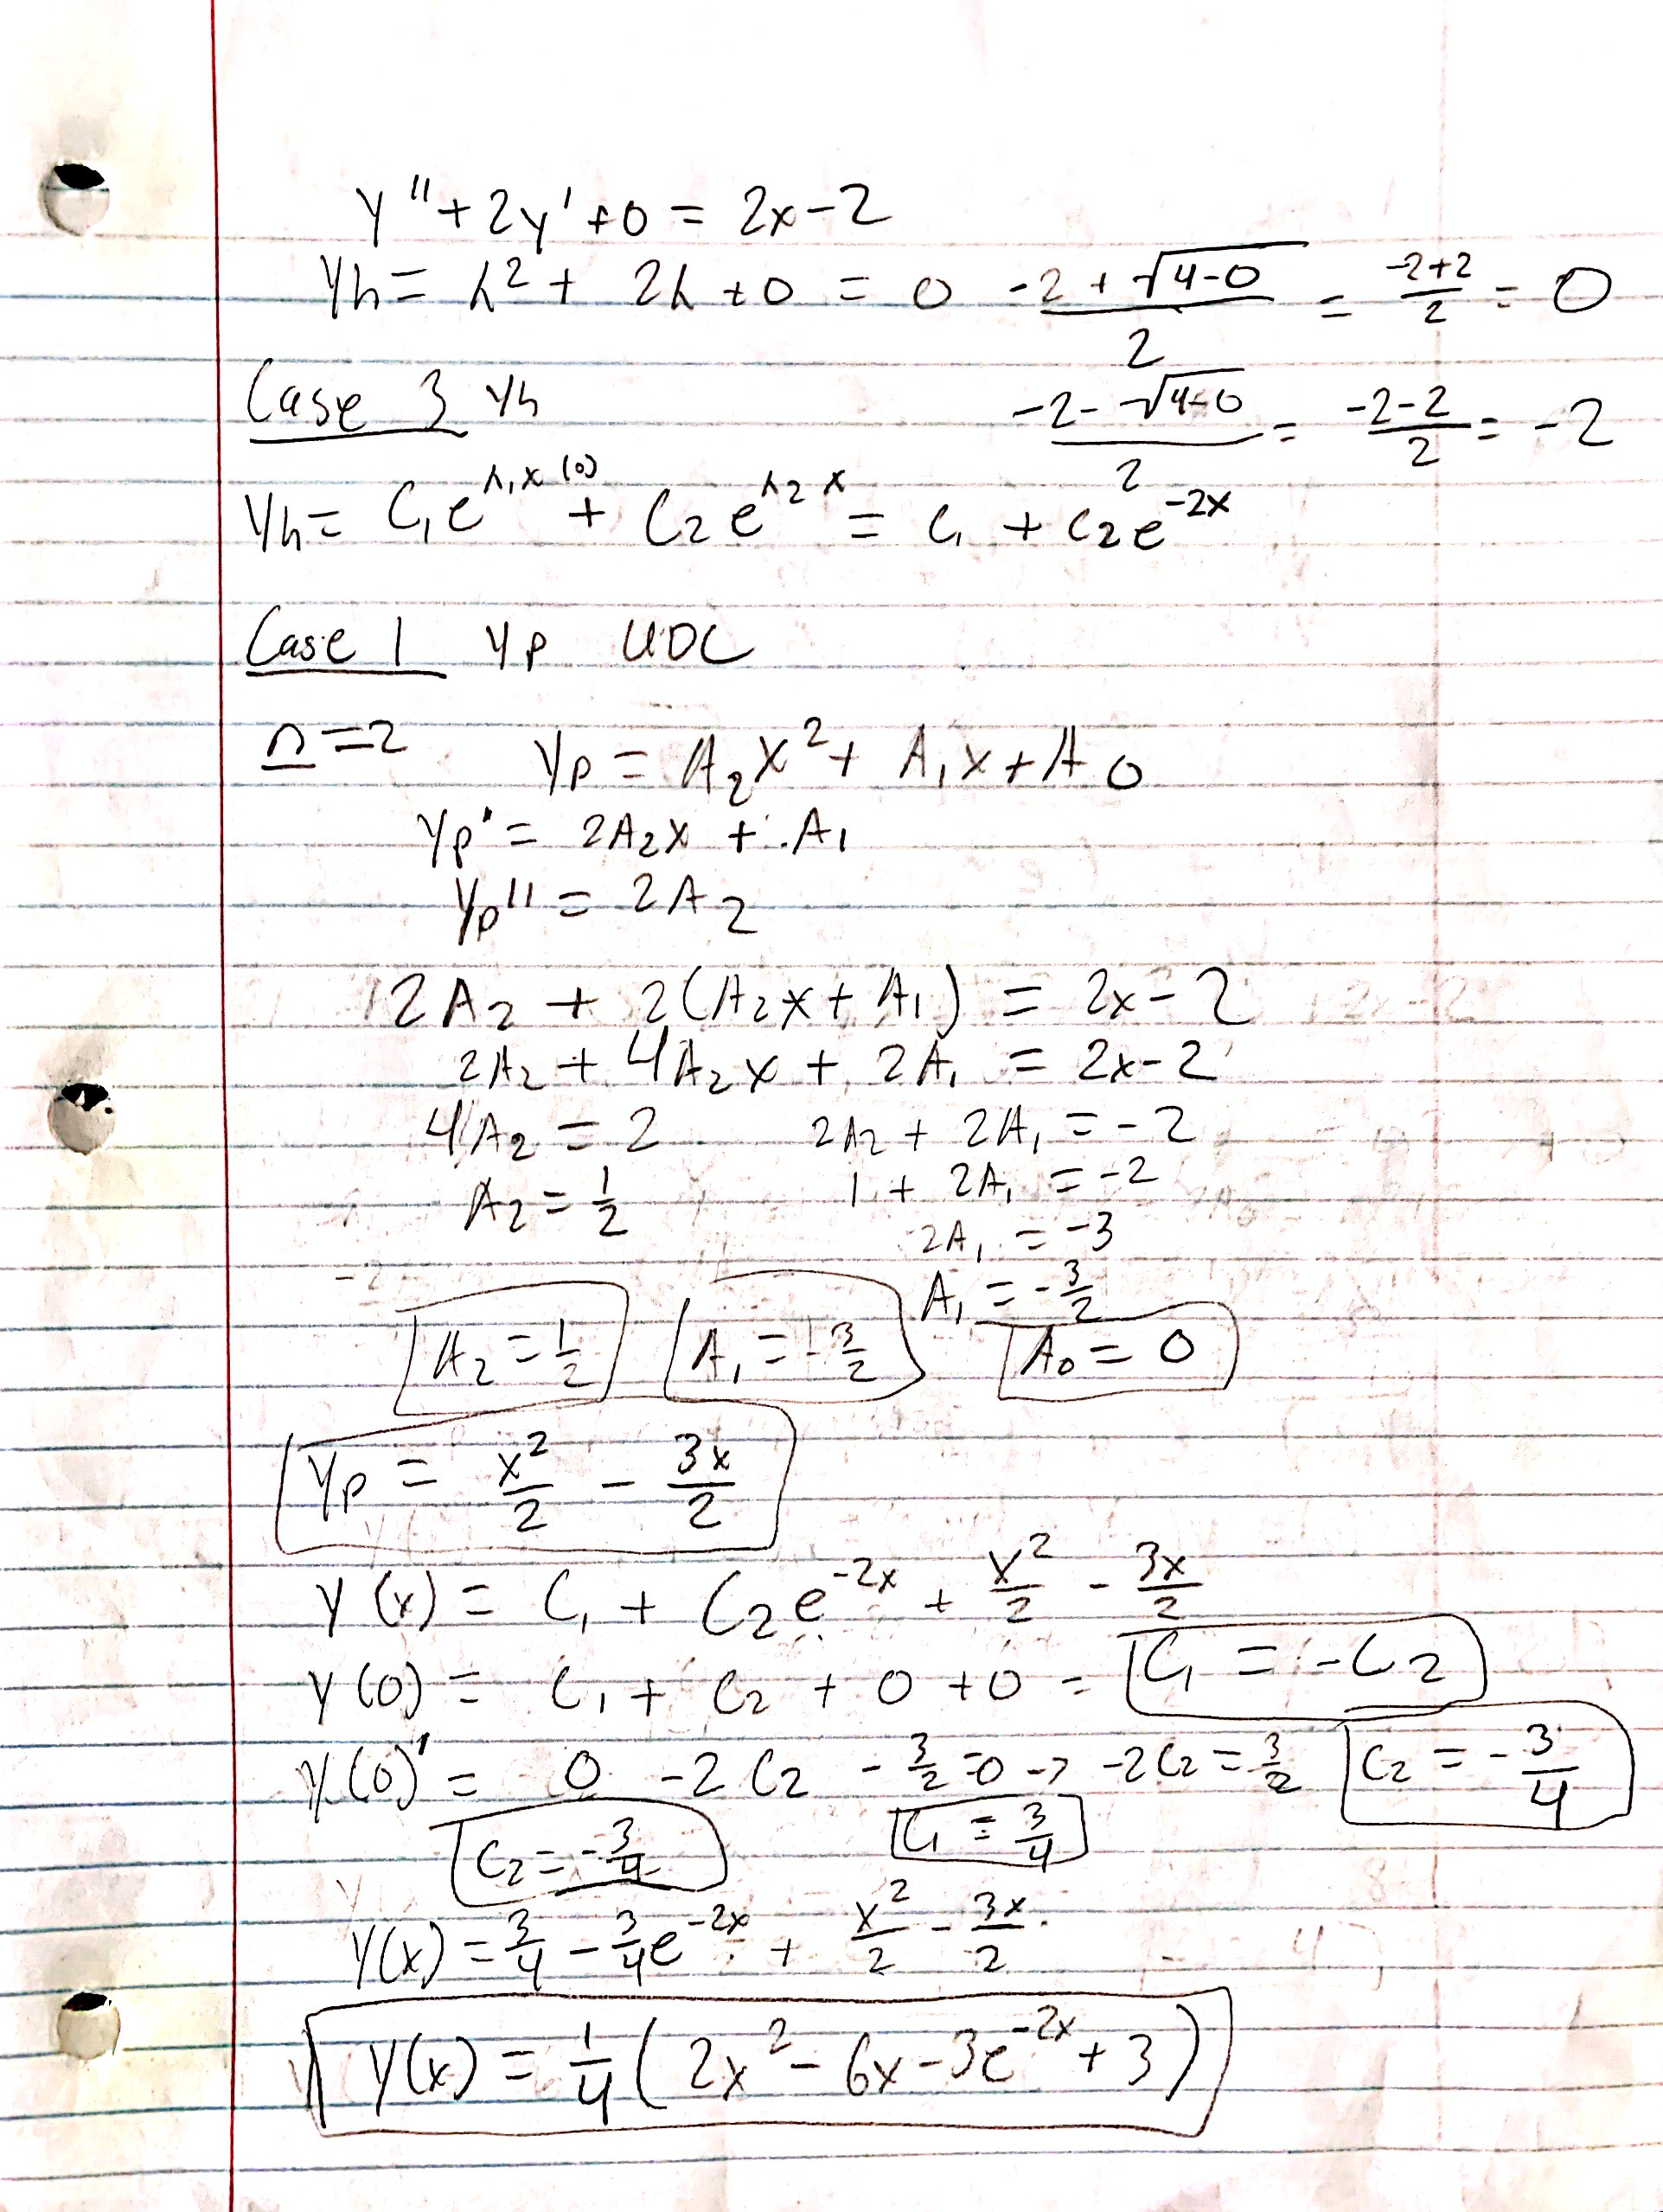 y'' + 2y' + 0 = 2x - 2
yh = λ² + 2λ + 0 = 0   (-2 + √(4-0))/2 = (-2+2)/2 = 0
Case 3 yh   (-2 - √(4-0))/2 = (-2-2)/2 = -2
yh = C₁e^(λ₁x (0)) + C₂e^(λ₂x) = C₁ + C₂e^(-2x)
Case 1 yp UDC
n=2   yp = A₂x² + A₁x + A₀
yp' = 2A₂x + A₁
yp'' = 2A₂
2A₂ + 2(A₂x + A₁) = 2x - 2
2A₂ + 4A₂x + 2A₁ = 2x - 2
4A₂ = 2   2A₂ + 2A₁ = -2
A₂ = 1/2   1 + 2A₁ = -2
2A₁ = -3
A₁ = -3/2
A₂ = 1/2   A₁ = -3/2   A₀ = 0
yp = x²/2 - 3x/2
y(x) = C₁ + C₂e^(-2x) + x²/2 - 3x/2
y(0) = C₁ + C₂ + 0 + 0 = C₁ = -C₂
y(0)' = 0 - 2C₂ - 3/2 = 0 → -2C₂ = 3/2   C₂ = -3/4
C₂ = -3/4   C₁ = 3/4
y(x) = 3/4 - 3/4e^(-2x) + x²/2 - 3x/2
y(x) = 1/4(2x² - 6x - 3e^(-2x) + 3)